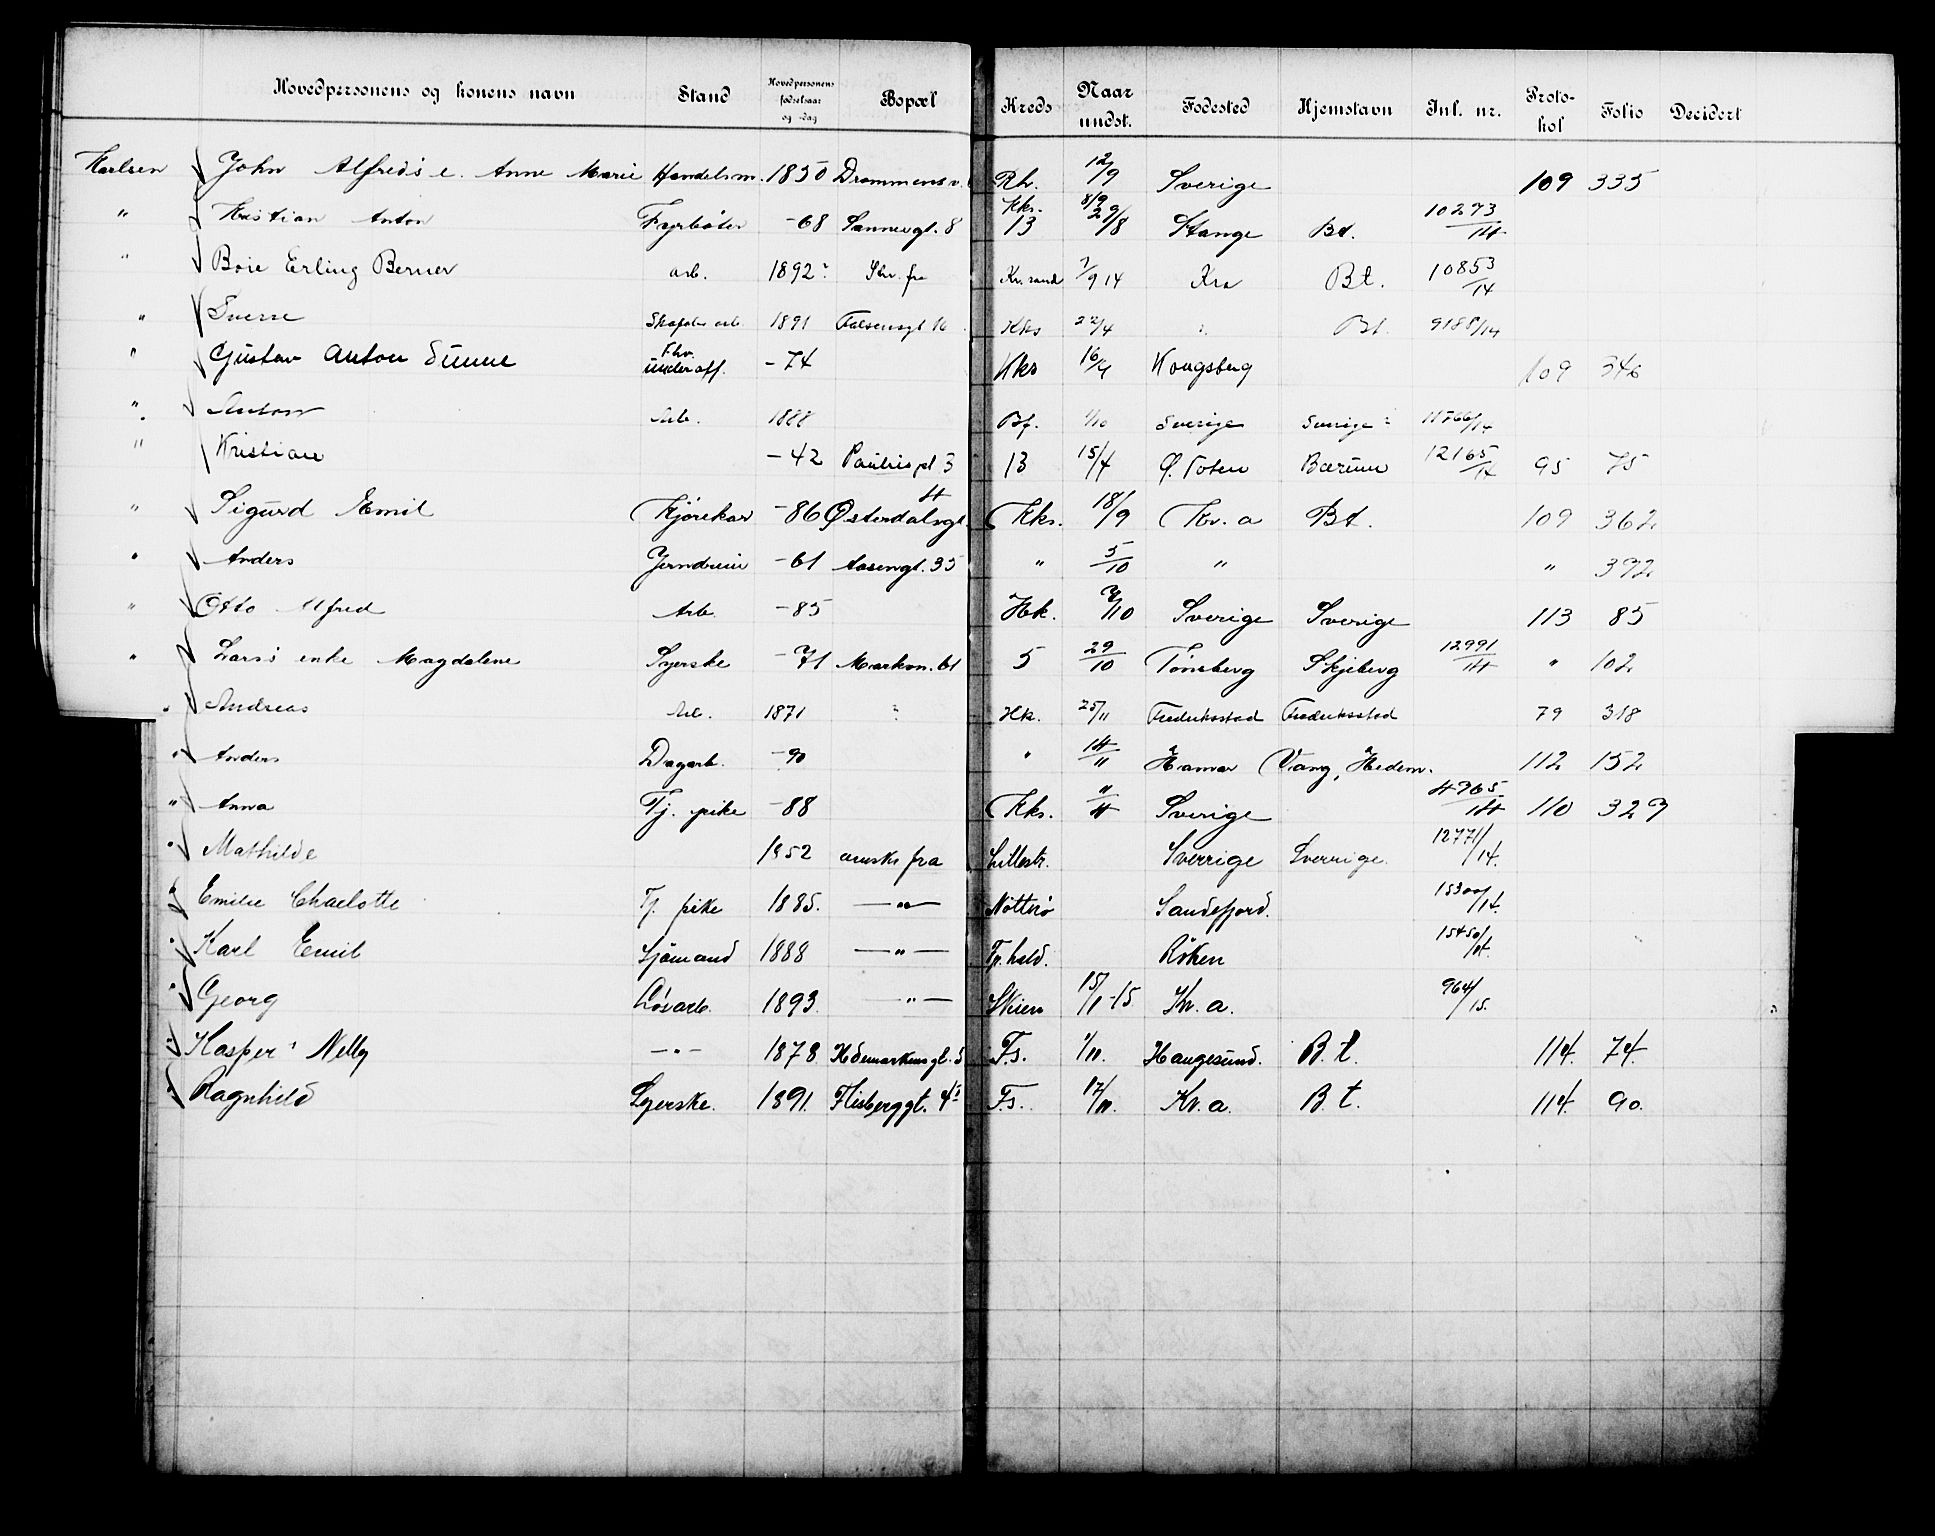 Hovedpersonens og konens navn Stand Hovedpersonens fødselsaar og -dag Bopæl Kreds Naar undst. Fødested Hjemstavn Inl. nr. Protokol Folio Decidert
Karlsen John Alfreds e. Anne Marie Handelsm. 1850 Drammensv. Rh. 12/9 Sverige 109 335
" Kristian Anton Fyrbøter -68 Sannergt. 8 Kks. 13 8/9 29/8 Stange Bt. 10273/14
" Boie Erling Berner arb. 1892 Skr. fra Kr.sand 7/9 14 Kra Bt. 10853/14
" Sverre 1891 Falsensgt 16 Kks 22/4 " Bt. 9188/14
" Gustav Anton Sunne Fhv. underoff. -74 Kks 16/9 Kongsberg 109 346
" Anton Arb. 1888 Bf. 1/10 Sverige Sverige 11766/14
" Kristian -42 Paulus pl 3 13 15/4 Ø. Toten Bærum 12165/14 95 75
" Sigurd Emil Kjørekar -86 Østerdalsgt. 4 Kks. 18/9 Kr. a Bt. 109 362
" Anders Jerndreier -61 Aasengt. 35 " 5/10 " " 392
" Otto Alfred Arb. -85 Hk. 7/10 Sverige Sverige 113 85
" Lars's enke Magdalene Syerske -71 Markvn. 61 5 29/10 Tønsberg Skjeberg 12991/14 " 102
" Andreas Arb. 1871 Hk. 25/11 Frederiksstad Frederiksstad 79 318
" Anders Dagarb. -90 " 14/11 Hamar Vang, Hedem. 112 152
" Anna Tj. pike -88 Kks. 11/4 Sverige 4965/14 110 329
" Mathilde 1852 ønske fra Lillestr. Sverrige Sverrige. 12771/14.
" Emilie Charlotte Tj. pike 1885. —"— Nötterö Sandefjord. 15300/14.
" Karl Emil Sjömand 1888 —"— Fr.hald. Röken 15450/14.
" Georg Løsarb. 1893. —"— Skien 15/1-15 Kr. a. 964/15.
" Kasper's Nelly —"— 1878. Hdemarkens gt. 5 F.s. 1/11. Haugesund. B. t. 114. 74.
" Ragnhild Syerske. 1891. Flisberggt. 4 F.s. 12/11. Kr. a. B. t. 114. 90.